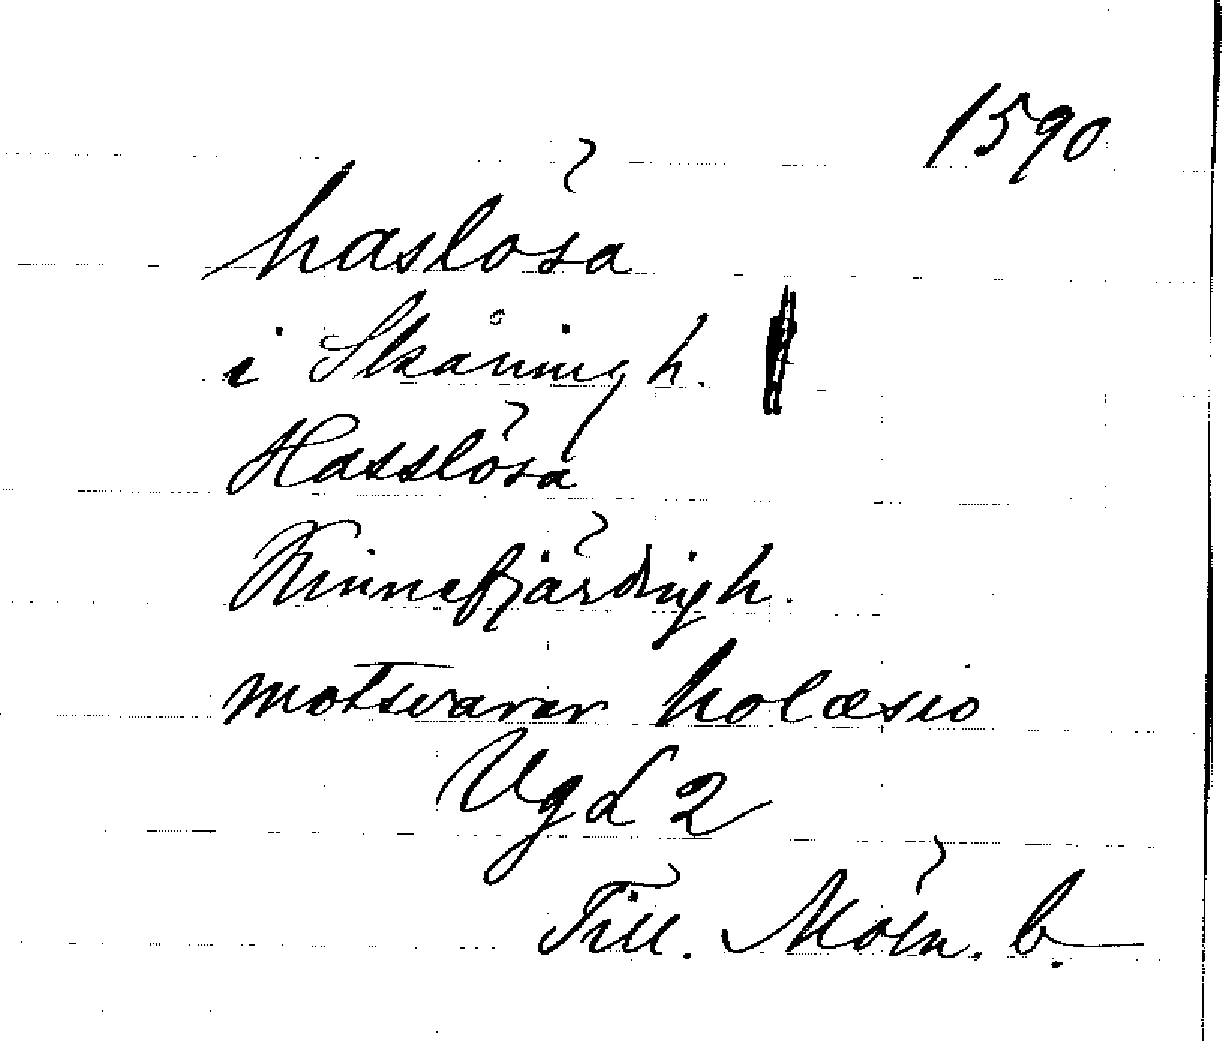 1590
haslösa
i Skånings h.
Hasslösa
Kinnefjärdings h.
motsvarar holæsio
VgL 2
Till. Möln. b.